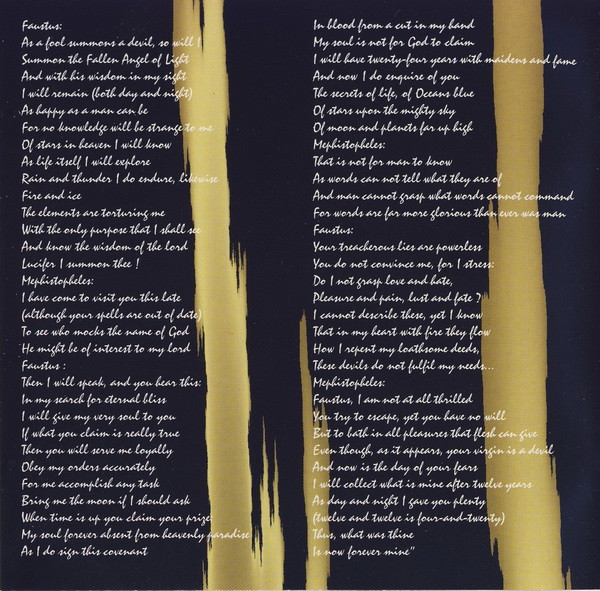 Faustus:
As a fool summons a devil, so will I
Summon the Fallen Angel of Light
And with his wisdom in my sight
I will remain (both day and night)
As happy as a man can be
For no knowledge will be strange to me
Of stars in heaven I will know
As life itself I will explore
Rain and thunder I do endure, likewise
Fire and ice
The elements are torturing me
With the only purpose that I shall see
And know the wisdom of the lord
Lucifer I summon thee !
Mephistopheles:
I have come to visit you this late
(although your spells are out of date)
To see who mocks the name of God
He might be of interest to my lord
Faustus :
Then I will speak, and you hear this:
In my search for eternal bliss
I will give my very soul to you
If what you claim is really true
Then you will serve me loyally
Obey my orders accurately
For me accomplish any task
Bring me the moon if I should ask
When time is up you claim your prize:
My soul forever absent from heavenly paradise
As I do sign this covenant
In blood from a cut in my hand
My soul is not for God to claim
I will have twenty-four years with maidens and fame
And now I do enquire of you
The secrets of life, of Oceans blue
Of stars upon the mighty sky
Of moon and planets far up high
Mephistopheles:
That is not for man to know
As words can not tell what they are of
And man cannot grasp what words cannot command
For words are far more glorious than ever was man
Faustus:
Your treacherous lies are powerless
You do not convince me, for I stress:
Do I not grasp love and hate,
Pleasure and pain, lust and fate ?
I cannot describe these, yet I know
That in my heart with fire they flow
How I repent my loathsome deeds,
These devils do not fulfil my needs...
Mephistopheles:
Faustus, I am not at all thrilled
You try to escape, yet you have no will
But to bath in all pleasures that flesh can give
Even though, as it appears, your virgin is a devil
And now is the day of your fears
I will collect what is mine after twelve years
As day and night I gave you plenty
(twelve and twelve is four-and-twenty)
Thus, what was thine
Is now forever mine"